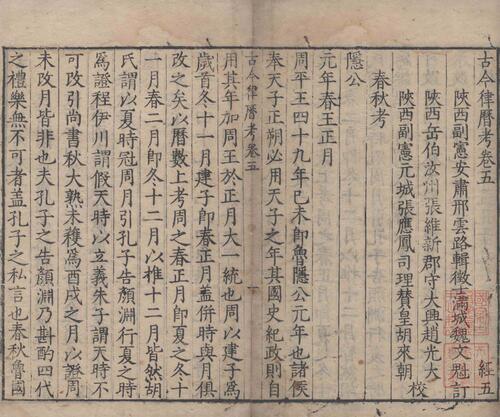 古今律曆考卷五
經五
陝西副憲安肅邢雲路輯徵士滿城魏文魁訂
陝西岳伯汝州張維新郡守大興趙光大
陝西副憲元城張應鳳司理贊皇胡來朝
校
春秋考
隱公
元年春王正月
周平王四十九年己未卽魯隱公元年也諸侯
奉天子正朔必用天子之年其國史紀政則自
古今律曆考卷五
用其年加周王於正月大一統也周以建子爲
歲首冬十一月建子卽春正月蓋併時與月俱
改之矣以曆數上考周之春正月卽夏之冬十
一月春二月卽冬十二月以推十二月皆然胡
氏謂以夏時冠周月引孔子告顏淵行夏之時
爲證程伊川謂假天時以立義朱子謂天時不
可改引尚書秋大熟未穫爲酉戌之月以證周
未改月皆非也夫孔子之告顏淵乃斟酌四代
之禮樂無不可者蓋孔子之私言也春秋魯國